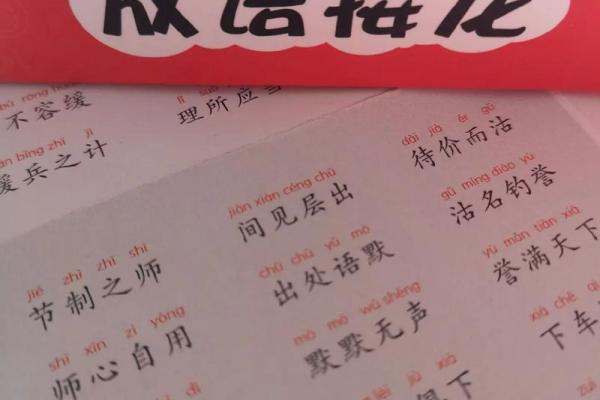 成语接龙
bù róng huǎn
不容缓
bīng zhī jì
缓兵之计
lǐ suǒ yīng
理所应当
jié zhì zhī shī
节制之师
shī xīn zì yòng
师心自用
dì
jiàn xiàn céng chū
间见层出
chū chǔ yǔ mò
出处语默
mò mò wú shēng
默默无声
xià
下
dài jià ér gū
待价而沽
gū míng diào yù
沽名钓誉
yù mǎn tiān xià
誉满天下
xià chē
下车